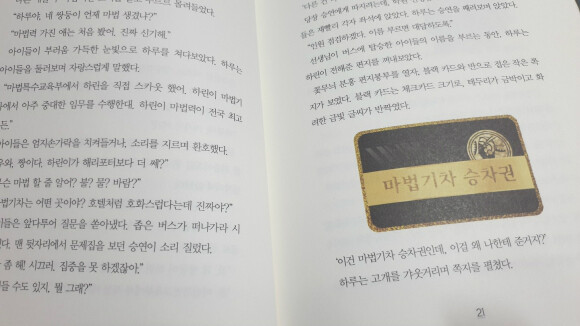 "하루야, 네 쌍둥이 언제 마법 생겼냐?"
"마법력 가진 애는 처음 봤어, 진짜 신기해."
아이들이 부러움 가득한 눈빛으로 하루를 쳐다보았다. 하루는
아이들을 둘러보며 자랑스럽게 말했다.
"마법특수교육부에서 하린을 직접 스카웃 했어. 하린이 마법기
에서 아주 중대한 임무를 수행한대. 하린이 마법력이 전국 최고
든."
아이들은 엄지손가락을 치켜들거나, 소리를 지르며 환호했다.
와, 짱이다. 하린이가 해리포터보다 더 쎄?"
슨 마법 할 줄 알아? 불? 물? 바람?"
법기차는 어떤 곳이야? 호텔처럼 호화스럽다는데 진짜야?"
들은 앞다투어 질문을 쏟아냈다. 좁은 버스가 떠나가라 시
다. 맨 뒷자리에서 문제집을 보던 승연이 소리 질렀다.
좀 해! 시끄러, 집중을 못 하겠잖아."
들 수도 있지, 뭘 그래?"
당장 승연에게 따지려는데,
들은 재빨리 각자 좌석에 앉았다. 하루는 승연을 째려보며 앉았다.
"인원 점검하겠다. 이름 부르면 대답하도록."
선생님이 버스에 탑승한 아이들의 이름을 부르는 동안, 하루는
하린이 전해준 편지를 꺼내보았다.
꽃무늬 분홍 편지봉투를 열자, 블랙 카드와 반으로 접은 작은 쪽
지가 보였다. 블랙 카드는 체크카드 크기로, 테두리가 금박이고 화
려한 금빛 글씨가 반짝였다.
마법기차 승차권
'이건 마법기차 승차권인데, 이걸 왜 나한테 준거지?'
하루는 고개를 갸웃거리며 쪽지를 펼쳤다.
21